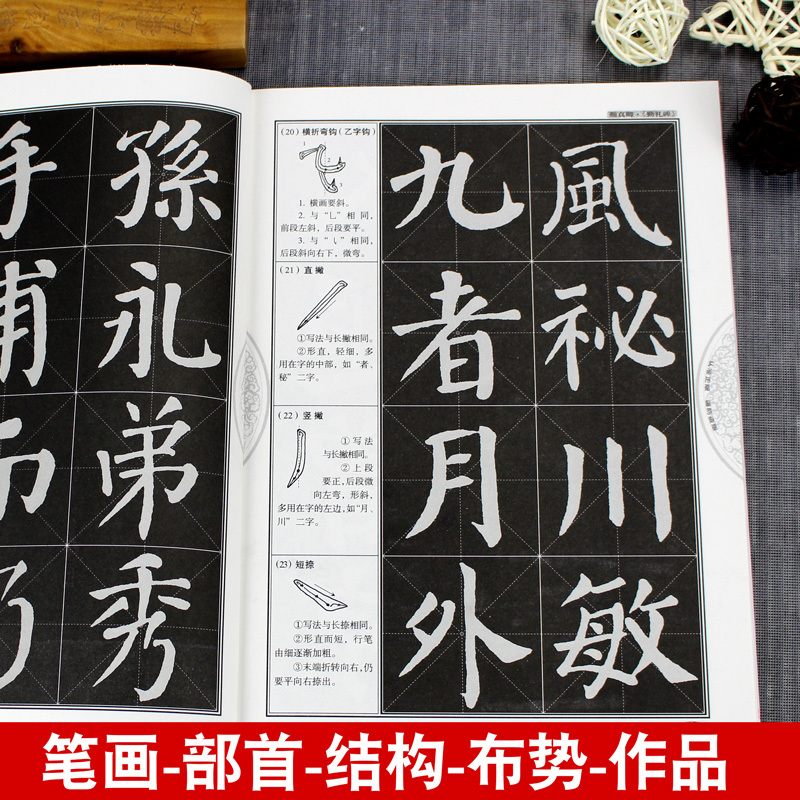 孫
永
弟
秀
颜真卿·《勤礼碑》
(20) 横折弯钩(乙字钩)
1
2
3
1. 横画要斜。
2. 与“乚”相同,
前段左斜,后段要平。
3. 与“㇂”相同,
后段斜向右下,微弯。
九 風
(21) 直撇
①写法与长撇相同。
②形直,轻细,多
用在字的中部,如“者、
秘”二字。
者 祕
(22) 竖撇
①写法
与长撇相同。
②上段
要正,后段微
向左弯,形斜,
多用在字的左边,如“月、
川”二字。
月 川
(23) 短捺
①写法与长捺相同。
②形直而短,行笔
由细逐渐加粗。
③末端折转向右,仍
要平向右捺出。
外 敏
笔画-部首-结构-布势-作品